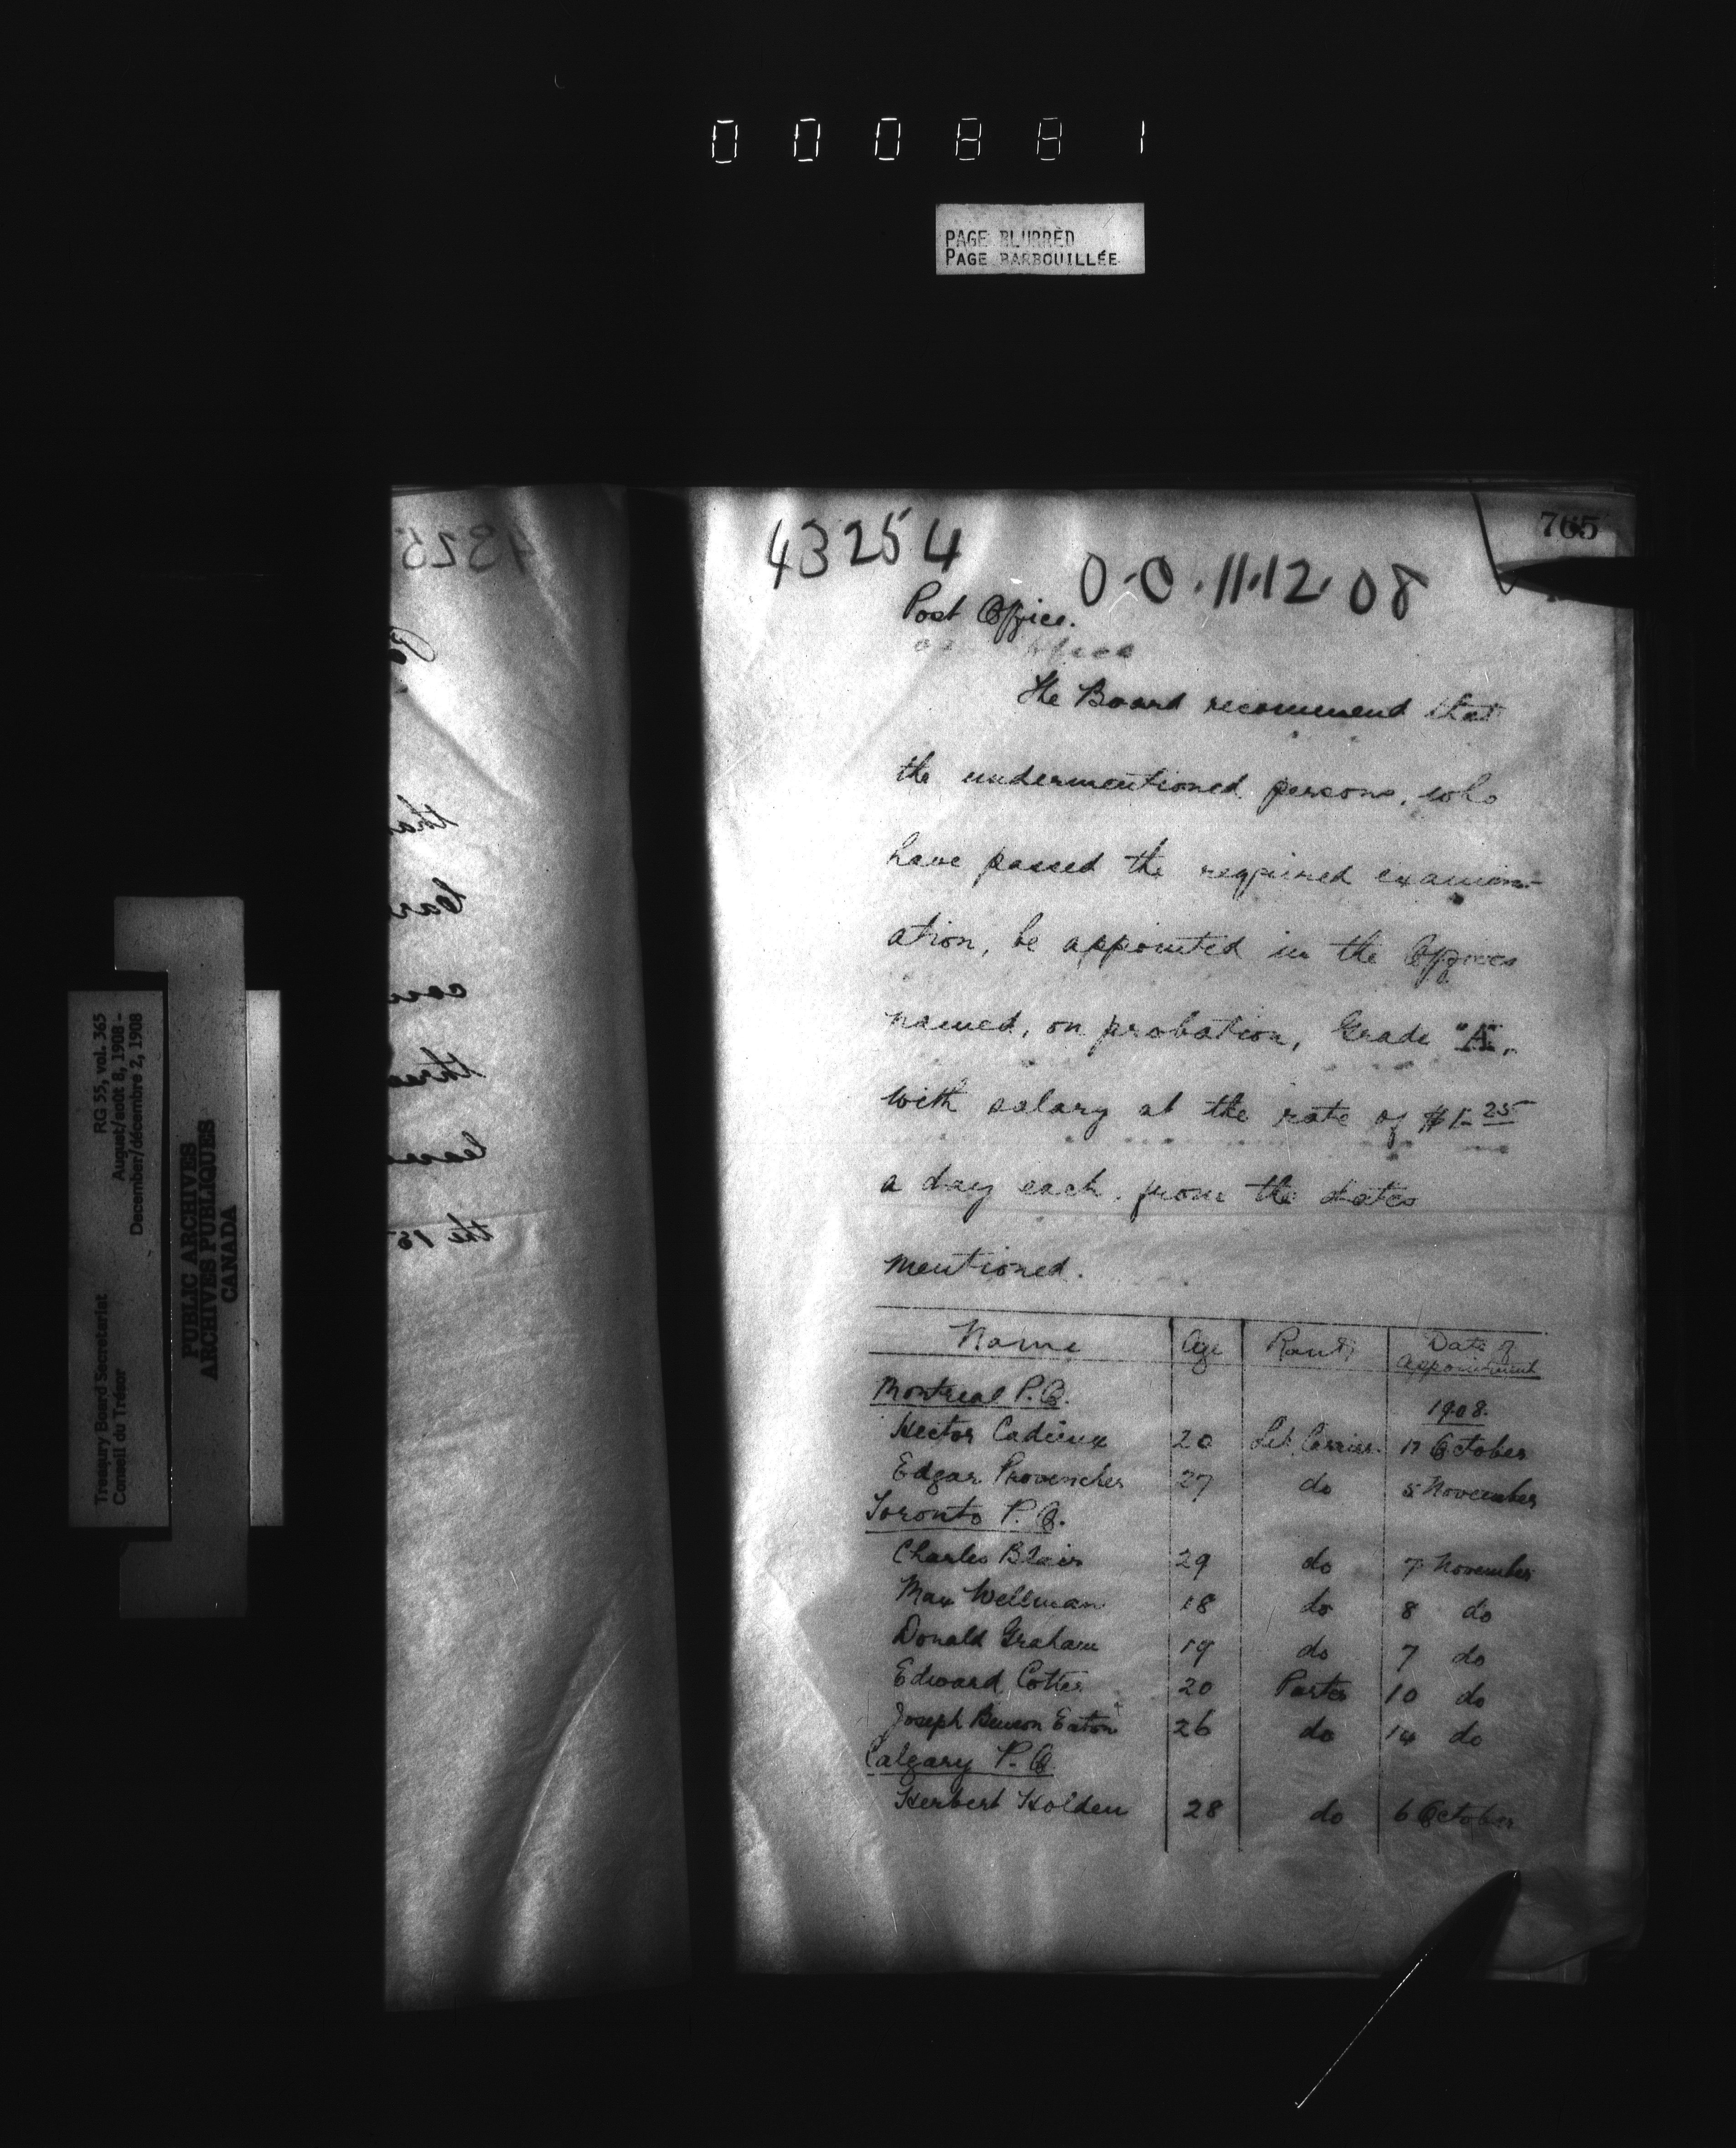 000881
PAGE BLURRED
PAGE BARBOUILLÉE
765
43254
O.C. 11.12.08
Post Office.
The Board recommend that
the undermentioned persons, who
have passed the required examin-
ation, be appointed in the Offices
named, on probation, Grade "A",
with salary at the rate of $1.25
a day each, from the dates
mentioned.
Name Age Rank Date of Appointment
Montreal P.O. 1908.
Hector Cadieux 20 Let. Carrier 17 October
Edgar Provencher 27 do 5 November
Toronto P.O.
Charles Blair 29 do 7 November
Max Wellman 18 do 8 do
Donald Graham 19 do 7 do
Edward Cotter 20 Porter 10 do
Joseph Benson Eaton 26 do 14 do
Calgary P.O.
Herbert Holden 28 do 6 October
Treasury Board Secretariat RG 55, vol. 365
Conseil du Trésor August/août 8, 1908 -
December/décembre 2, 1908
PUBLIC ARCHIVES
ARCHIVES PUBLIQUES
CANADA